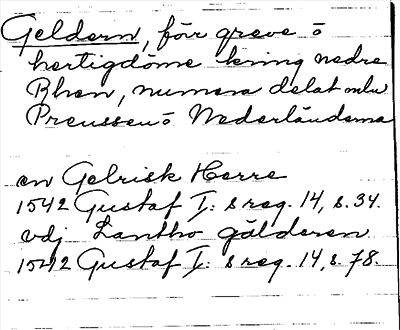 Geldern, förr greve- o
hertigdöme kring nedre
Rhen, numera delat mln
Preussen o Nederländerna
en Gelrisk Herre
1542 Gustaf I: s reg. 14, s. 34.
vdj Lantho gälderen
1542 Gustaf I: s reg. 14, s. 78.